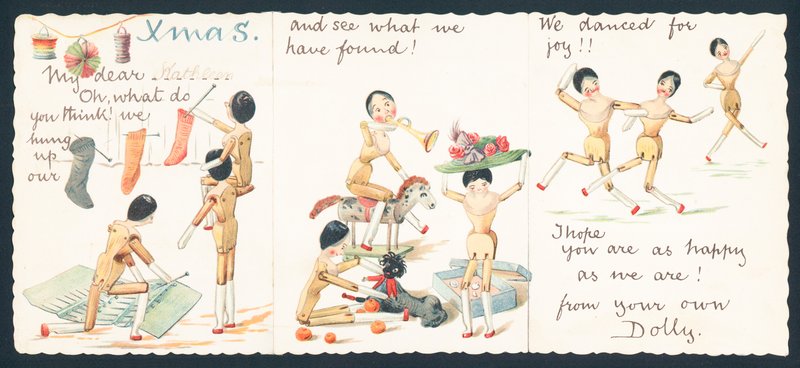 Xmas.
My dear Kathleen
Oh, what do
you think! we
hung
up
our
and see what we
have found!
We danced for
joy!!
I hope
you are as happy
as we are!
from your own
Dolly.